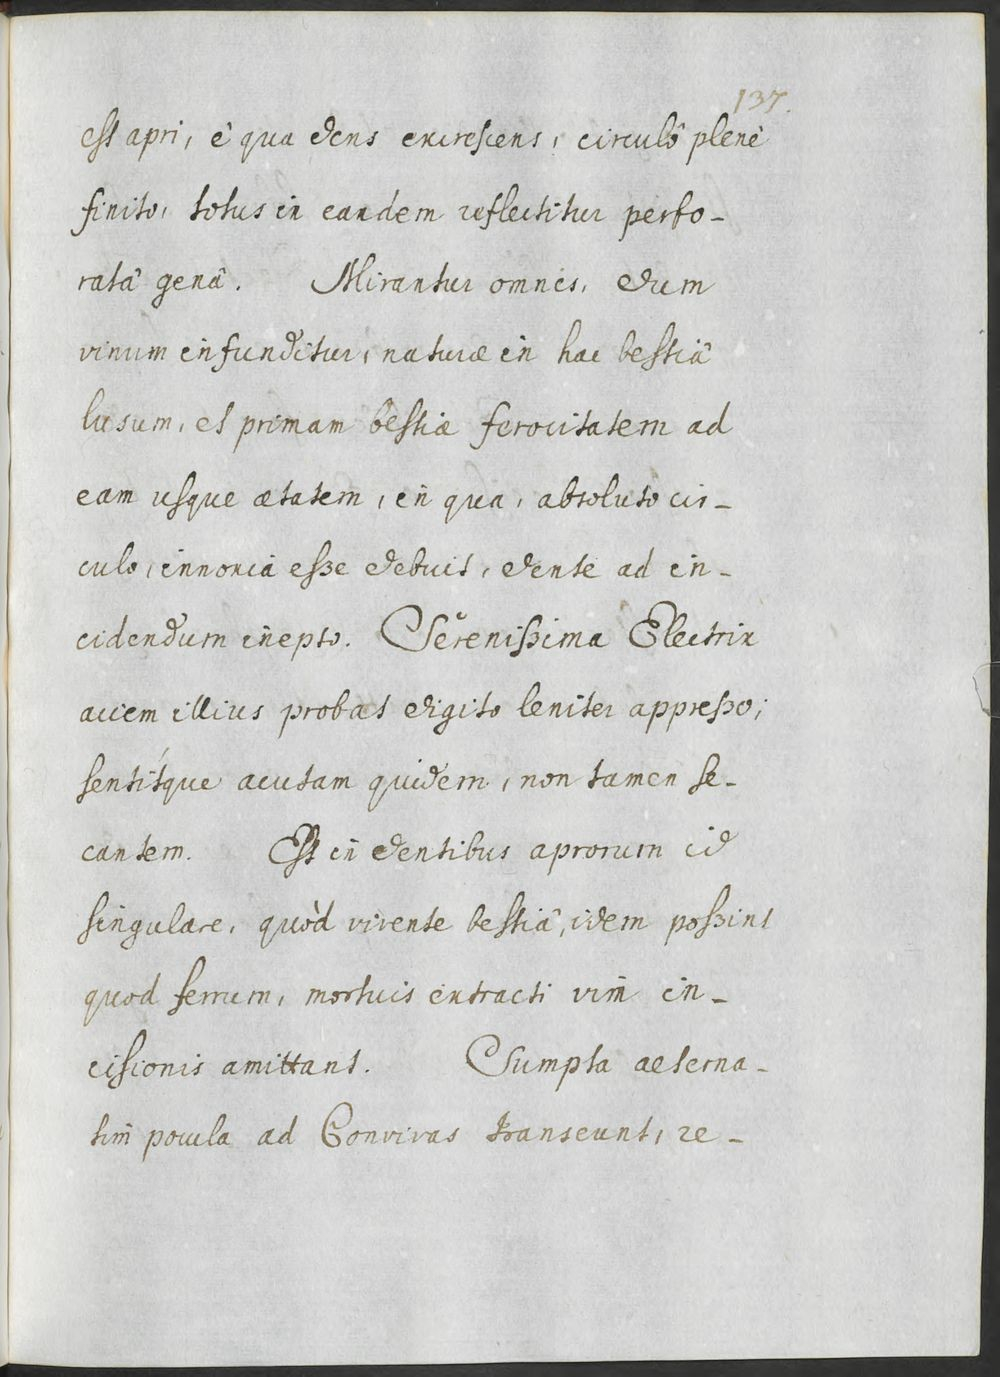 137.
est apri, è qua dens excrescens, circulô plenè
finito, totus in eandem reflectitur perfo-
ratâ genâ. Mirantur omnes, dum
vinum infunditur, naturæ in hac bestiâ
lusum, et primam bestiæ ferocitatem ad
eam usque ætatem, in qua, absoluto cir-
culo, innoxia esse debuit, dente ad in-
cidendum inepto. Serenissima Electrix
aciem illius probat digito leniter appresso;
sentítque acutam quidem, non tamen se-
cantem. Est in dentibus aprorum id
singulare, quòd vivente bestiâ, idem possint
quod ferrum, mortuis extracti vim in-
cisionis amittant. Sumpta aeterna-
tim pocula ad Convivas transeunt, re-